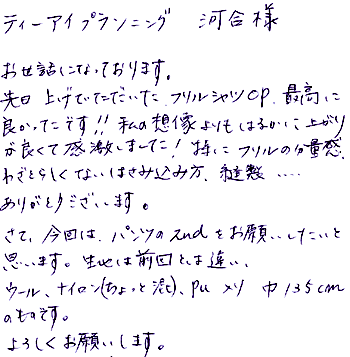 ティーアイプランニング 河合様
お世話になっております。
先日上げていただいた フリルシャツCP、最高に
良かったです!! 私の想像よりもはるかに上がり
が良くて感激しました! 特に フリルの分量感、
わざとらしくないはさみ込み方、縫製 ....
ありがとうございます。
さて、今回は、パンツの2ndをお願いしたいと
思います。生地は前回とは違い、
ウール、ナイロン(ちょっと混)、Pu 入り 巾135cm
のものです。
よろしくお願いします。